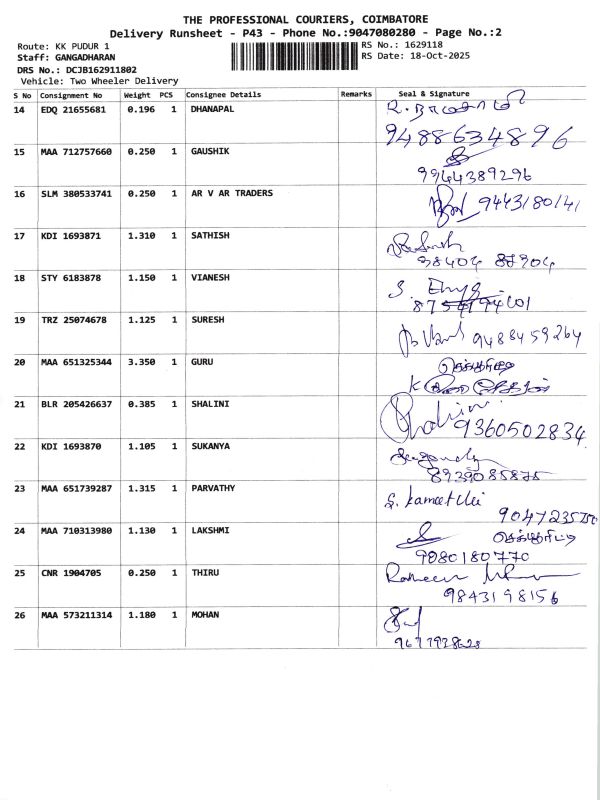 THE PROFESSIONAL COURIERS, COIMBATORE
Delivery Runsheet - P43 - Phone No.:9047080280 - Page No.:2
Route: KK PUDUR 1
RS No.: 1629118
Staff: GANGADHARAN
RS Date: 18-Oct-2025
DRS No.: DCJB162911802
Vehicle: Two Wheeler Delivery
S No Consignment No Weight PCS Consignee Details Remarks Seal & Signature
14 EDQ 21655681 0.196 1 DHANAPAL
9488634896
15 MAA 712757660 0.250 1 GAUSHIK
9944389296
16 SLM 380533741 0.250 1 AR V AR TRADERS 9443180141
17 KDI 1693871 1.310 1 SATHISH
18 STY 6183878 1.150 1 VIANESH
19 TRZ 25074678 1.125 1 SURESH
9488459264
20 MAA 651325344 3.350 1 GURU
21 BLR 205426637 0.385 1 SHALINI Shalini
9360502834
22 KDI 1693870 1.105 1 SUKANYA
8939085875
23 MAA 651739287 1.315 1 PARVATHY
9047235750
24 MAA 710313980 1.130 1 LAKSHMI செக்யூரிட்டி
9080180770
25 CNR 1904705 0.250 1 THIRU
9843198156
26 MAA 573211314 1.180 1 MOHAN